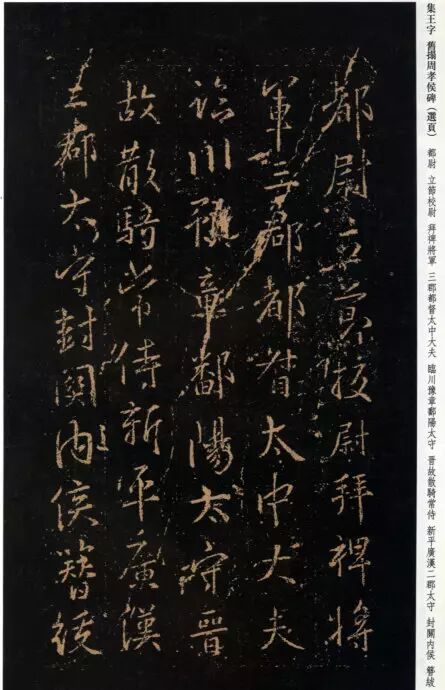 集王字 舊搨周孝侯碑（選頁） 都尉 立節校尉 拜裨將軍 三郡都督太中大夫 臨川豫章鄱陽太守 晋故散騎常侍 新平廣漢二郡太守 封關內侯 簪紱
都尉立節校尉拜裨將
軍三郡都督太中大夫
臨川豫章鄱陽太守晉
故散騎常侍新平廣漢
二郡太守封關內侯簪紱